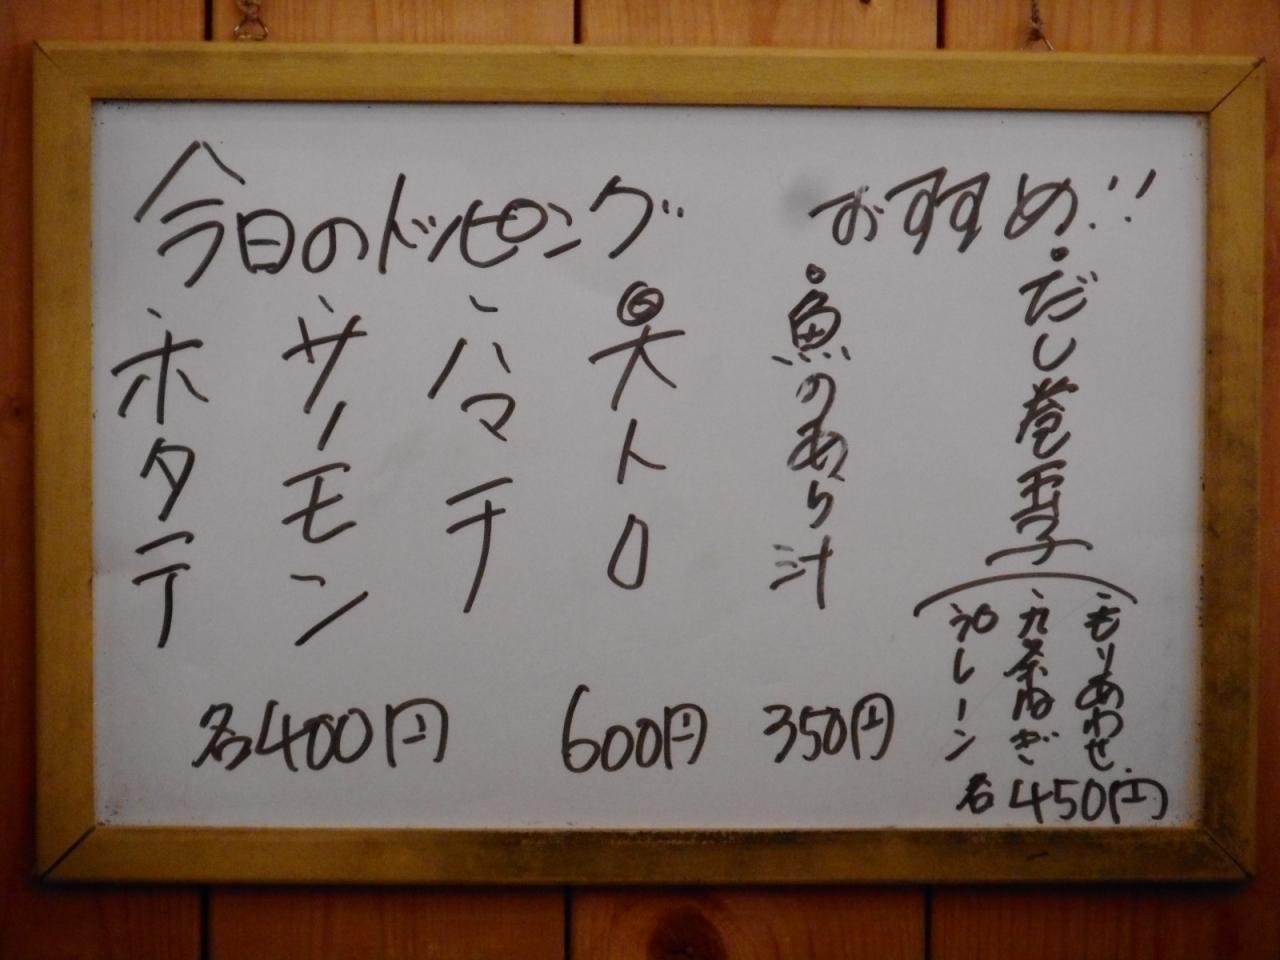 今日のトッピング
・ホタテ
・サーモン
・ハマチ
◎大トロ
各400円
600円
おすすめ!!
・魚のあら汁
350円
・だし巻玉子
・もりあわせ
・九条ねぎ
・プレーン
各450円